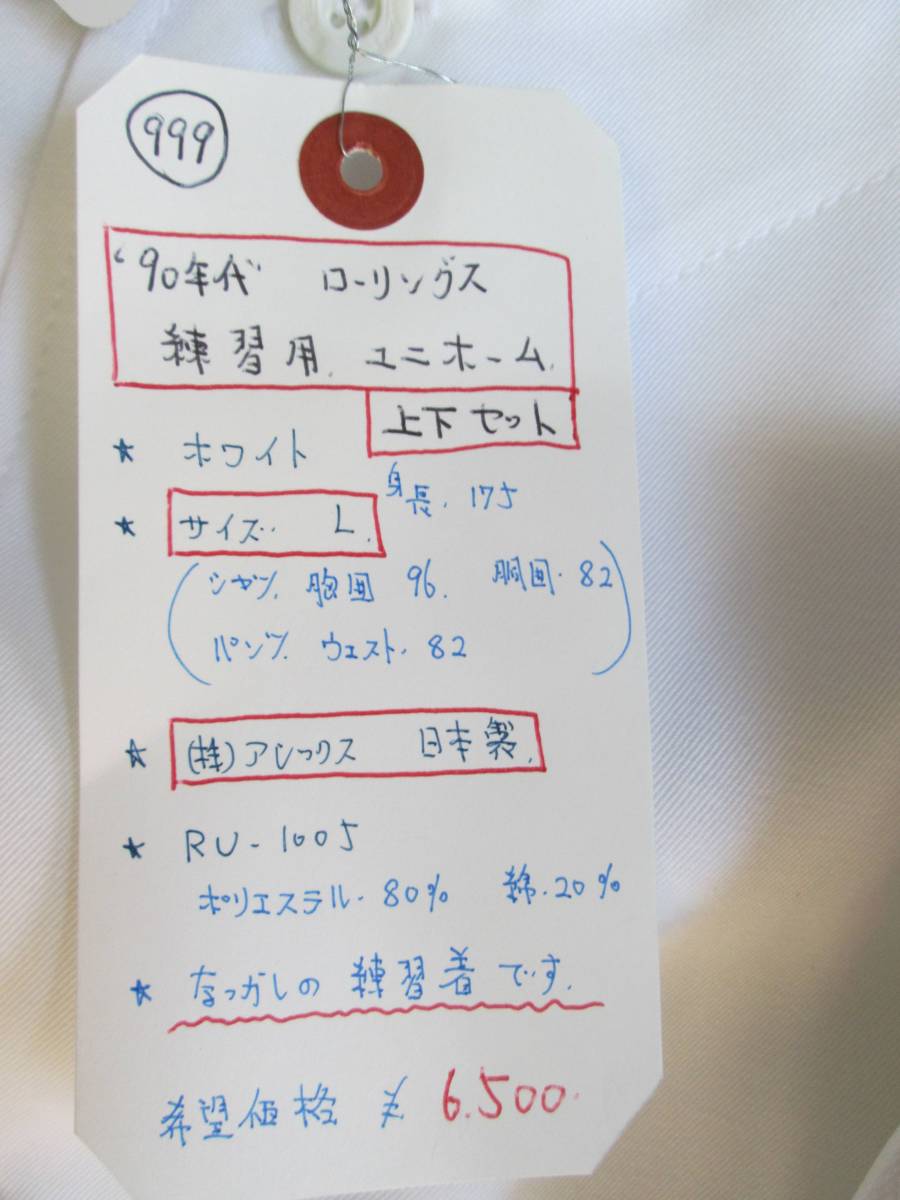 999
'90年代 ローリングス
練習用 ユニホーム
上下セット
★ ホワイト
★ サイズ L
身長 175
(シャツ 胸囲 96 胴囲 82
パンツ ウェスト 82)
★ (株)アレックス 日本製
★ RU-1005
ポリエステル 80% 綿 20%
★ なつかしの 練習着です.
希望価格 ¥6.500